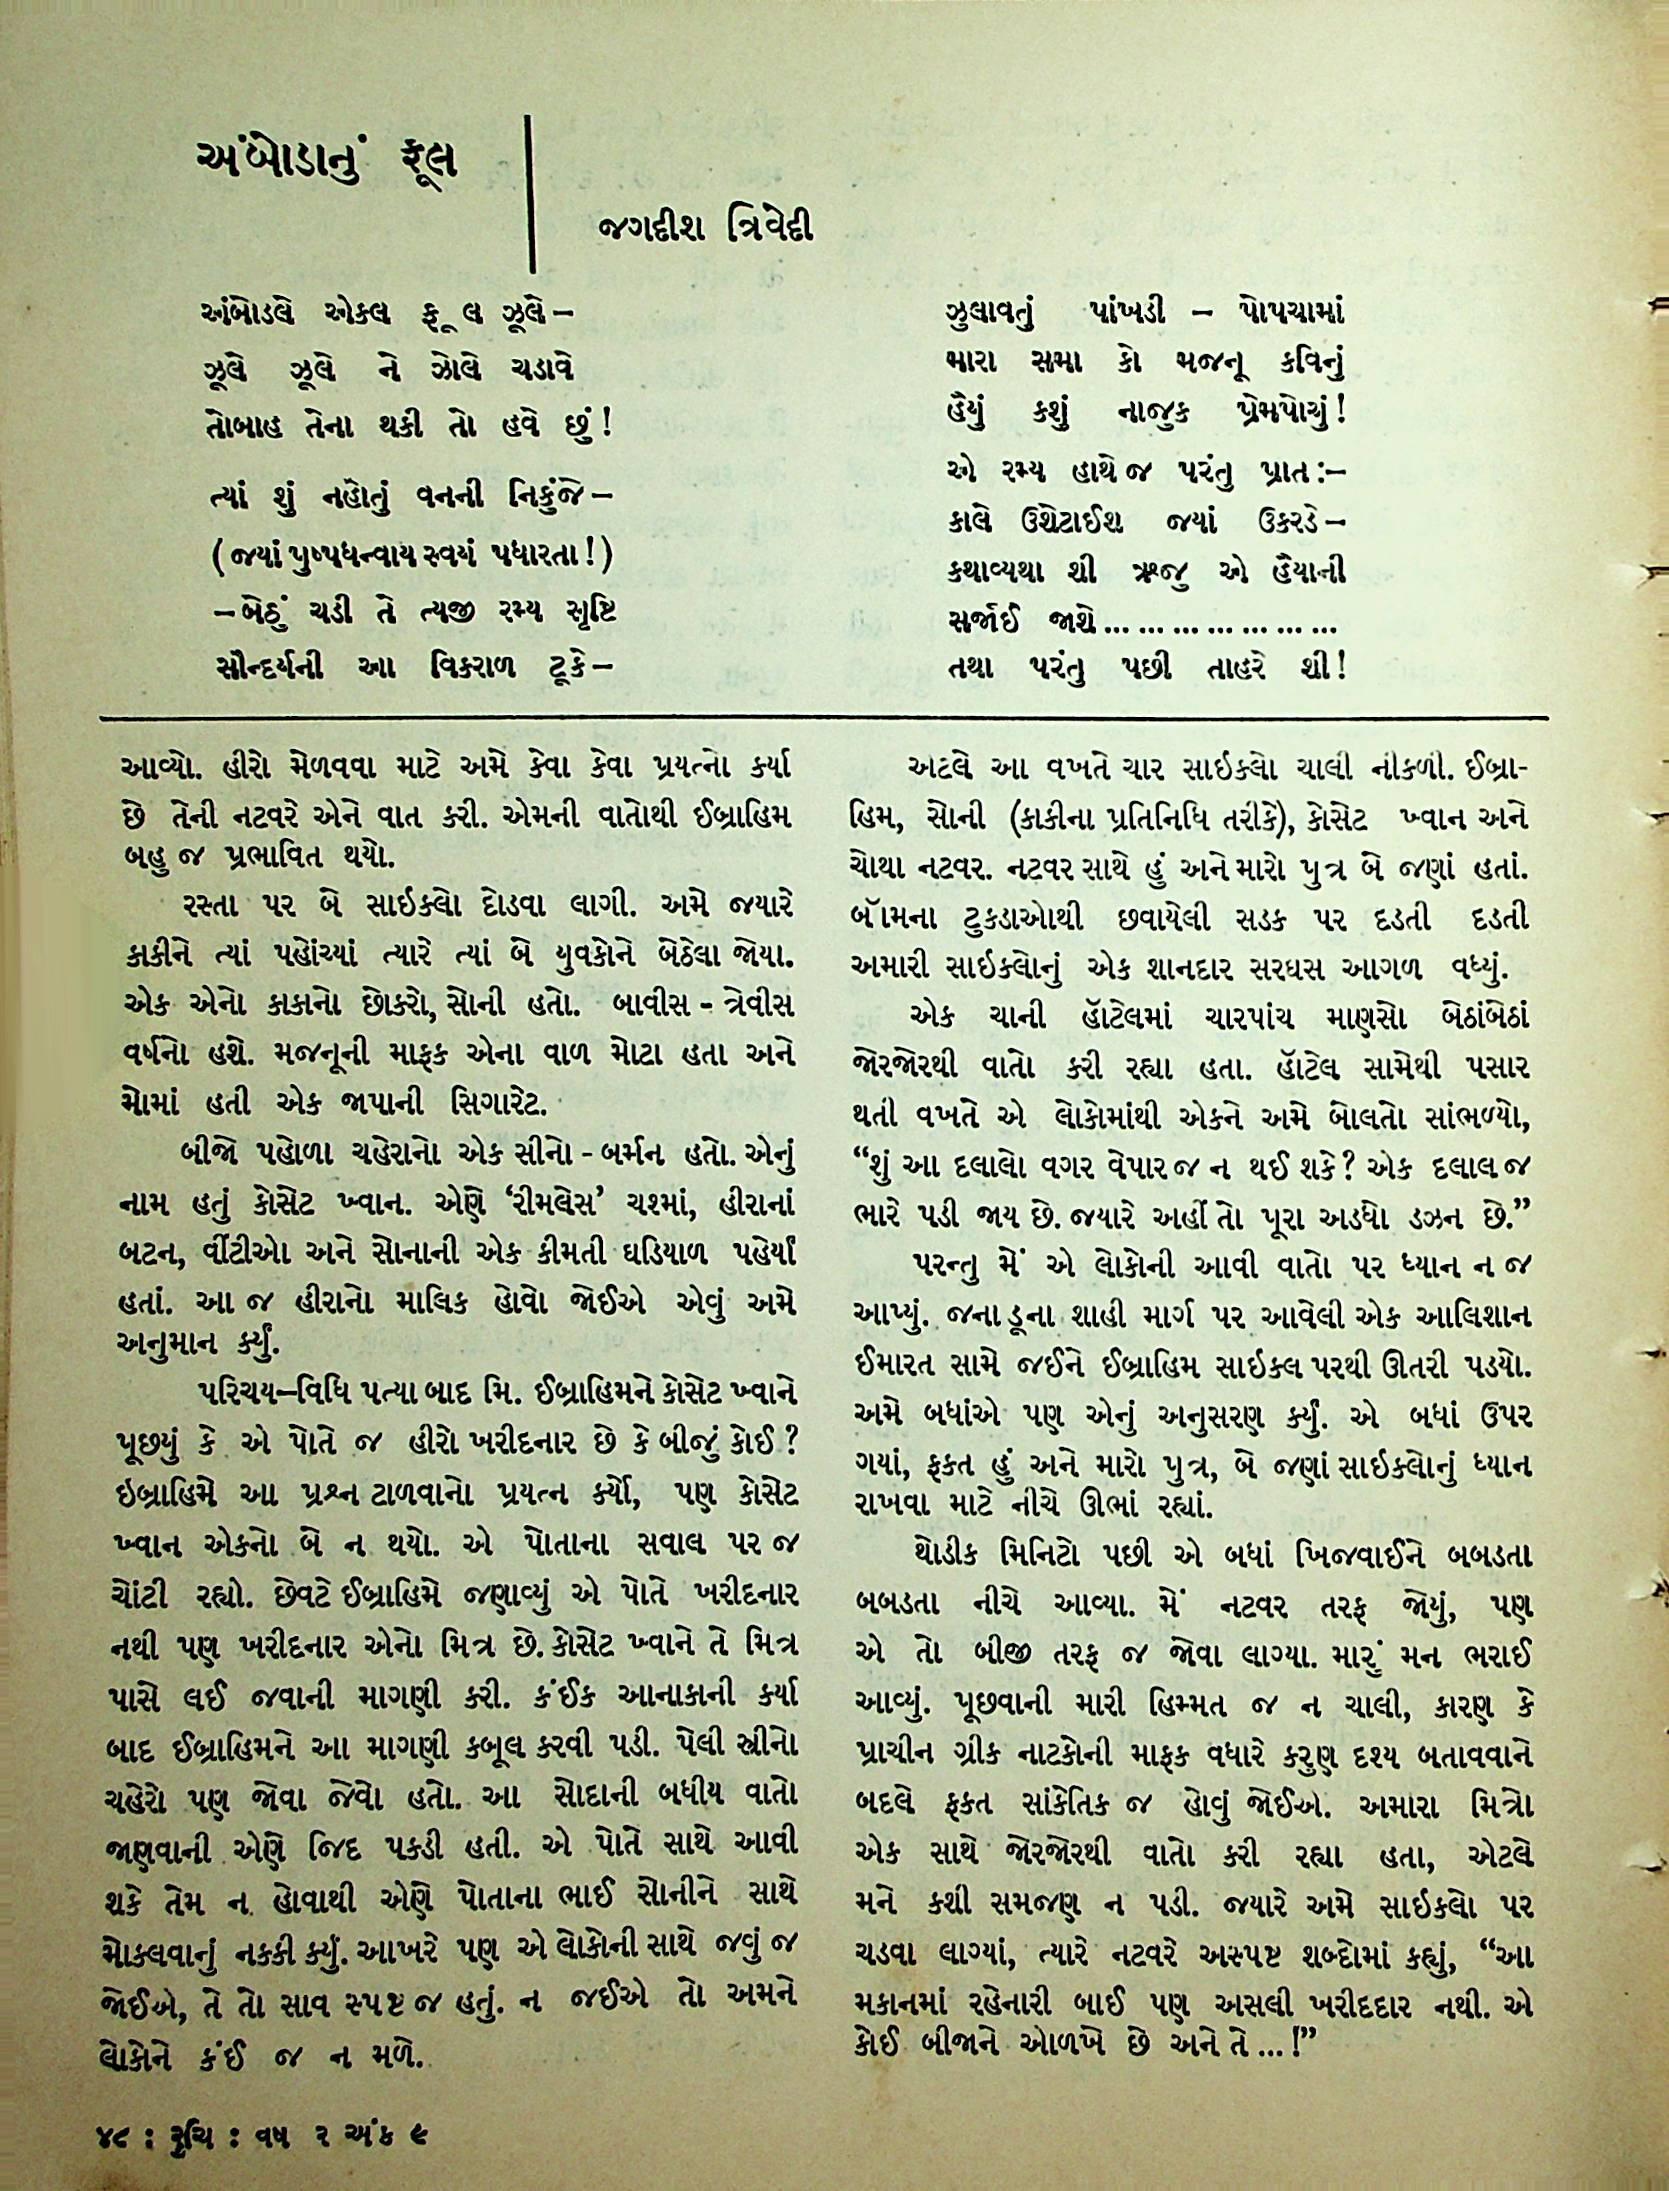 અંબોડાનું ફૂલ
જગદીશ ત્રિવેદી
અંબોડલે એકલ ફૂલ ઝૂલે–
ઝૂલે ઝૂલે ને ઝોલે ચડાવે
તોબાહ તેના થકી તો હવે છું!
ત્યાં શું નહોતું વનની નિકુંજે–
(જ્યાં પુષ્પધન્વાય સ્વયં પધારતા!)
–બેઠું ચડી તે ત્યજી રમ્ય સૃષ્ટિ
સૌન્દર્યની આ વિકરાળ ટૂકે–
ઝુલાવતું પાંખડી – પોપચામાં
મારા સમા કો મજનૂ કવિનું
હૈયું કશું નાજુક પ્રેમપોચું!
એ રમ્ય હાથે જ પરંતુ પ્રાત:–
કાલે ઉશેટાઈશ જ્યાં ઉકરડે–
કથાવ્યથા શી ઋજુ એ હૈયાની
સર્જાઈ જાશે... ... ... ... ... ... ...
તથા પરંતુ પછી તાહરે શી!
આવ્યો. હીરો મેળવવા માટે અમે કેવા કેવા પ્રયત્નો કર્યા
છે તેની નટવરે એને વાત કરી. એમની વાતોથી ઈબ્રાહિમ
બહુ જ પ્રભાવિત થયો.
રસ્તા પર બે સાઇકલો દોડવા લાગી. અમે જ્યારે
કાકીને ત્યાં પહોંચ્યાં ત્યારે ત્યાં બે યુવકોને બેઠેલા જોયા.
એક એનો કાકાનો છોકરો, સોની હતો. બાવીસ - ત્રેવીસ
વર્ષનો હશે. મજનૂની માફક એના વાળ મોટા હતા અને
મોમાં હતી એક જાપાની સિગારેટ.
બીજો પહોળા ચહેરાનો એક સીનો - બર્મન હતો. એનું
નામ હતું કોસેટ ખ્વાન. એણે ‘રીમલેસ’ ચશ્માં, હીરાનાં
બટન, વીંટીઓ અને સોનાની એક કીમતી ઘડિયાળ પહેર્યાં
હતાં. આ જ હીરાનો માલિક હોવો જોઈએ એવું અમે
અનુમાન કર્યું.
પરિચય–વિધિ પત્યા બાદ મિ. ઈબ્રાહિમને કોસેટ ખ્વાને
પૂછયું કે એ પોતે જ હીરો ખરીદનાર છે કે બીજું કોઈ?
ઇબ્રાહિમે આ પ્રશ્ન ટાળવાનો પ્રયત્ન કર્યો, પણ કોસેટ
ખ્વાન એકનો બે ન થયો. એ પોતાના સવાલ પર જ
ચોંટી રહ્યો. છેવટે ઈબ્રાહિમે જણાવ્યું એ પોતે ખરીદનાર
નથી પણ ખરીદનાર એનો મિત્ર છે. કોસેટ ખ્વાને તે મિત્ર
પાસે લઈ જવાની માગણી કરી. કંઈક આનાકાની કર્યા
બાદ ઈબ્રાહિમને આ માગણી કબૂલ કરવી પડી. પેલી સ્ત્રીનો
ચહેરો પણ જોવા જેવો હતો. આ સોદાની બધીય વાતો
જાણવાની એણે જિદ પકડી હતી. એ પોતે સાથે આવી
શકે તેમ ન હોવાથી એણે પોતાના ભાઈ સોનીને સાથે
મોકલવાનું નકકી કર્યું. આખરે પણ એ લોકોની સાથે જવું જ
જોઈએ, તે તો સાવ સ્પષ્ટ જ હતું. ન જઈએ તો અમને
લોકોને કંઈ જ ન મળે.
અટલે આ વખતે ચાર સાઇકલો ચાલી નીકળી. ઈબ્રા-
હિમ, સોની (કાકીના પ્રતિનિધિ તરીકે), કોસેટ ખ્વાન અને
ચોથા નટવર. નટવર સાથે હું અને મારો પુત્ર બે જણાં હતાં.
બૉમના ટુકડાઓથી છવાયેલી સડક પર દડતી દડતી
અમારી સાઇકલોનું એક શાનદાર સરઘસ આગળ વધ્યું.
એક ચાની હૉટેલમાં ચારપાંચ માણસો બેઠાંબેઠાં
જોરજોરથી વાતો કરી રહ્યા હતા. હૉટેલ સામેથી પસાર
થતી વખતે એ લોકોમાંથી એકને અમે બોલતો સાંભળ્યો,
“શું આ દલાલો વગર વેપાર જ ન થઈ શકે? એક દલાલ જ
ભારે પડી જાય છે. જ્યારે અહીં તો પૂરા અડધો ડઝન છે.”
પરન્તુ મેં એ લોકોની આવી વાતો પર ધ્યાન ન જ
આપ્યું. જનાડૂના શાહી માર્ગ પર આવેલી એક આલિશાન
ઈમારત સામે જઈને ઈબ્રાહિમ સાઇકલ પરથી ઊતરી પડયો.
અમે બધાંએ પણ એનું અનુસરણ કર્યું. એ બધાં ઉપર
ગયાં, ફકત હું અને મારો પુત્ર, બે જણાં સાઇકલોનું ધ્યાન
રાખવા માટે નીચે ઊભાં રહ્યાં.
થોડીક મિનિટો પછી એ બધાં ખિજવાઈને બબડતા
બબડતા નીચે આવ્યા. મેં નટવર તરફ જોયું, પણ
એ તો બીજી તરફ જ જોવા લાગ્યા. મારું મન ભરાઈ
આવ્યું. પૂછવાની મારી હિમ્મત જ ન ચાલી, કારણ કે
પ્રાચીન ગ્રીક નાટકોની માફક વધારે કરુણ દશ્ય બતાવવાને
બદલે ફકત સાંકેતિક જ હોવું જોઈએ. અમારા મિત્રો
એક સાથે જોરજોરથી વાતો કરી રહ્યા હતા, એટલે
મને કશી સમજણ ન પડી. જ્યારે અમે સાઇકલો પર
ચડવા લાગ્યાં, ત્યારે નટવરે અસ્પષ્ટ શબ્દોમાં કહ્યું, “આ
મકાનમાં રહેનારી બાઈ પણ અસલી ખરીદદાર નથી. એ
કોઈ બીજાને ઓળખે છે અને તે ... !”
૪૮ : રુચિ : વર્ષ ૨ અંક ૯